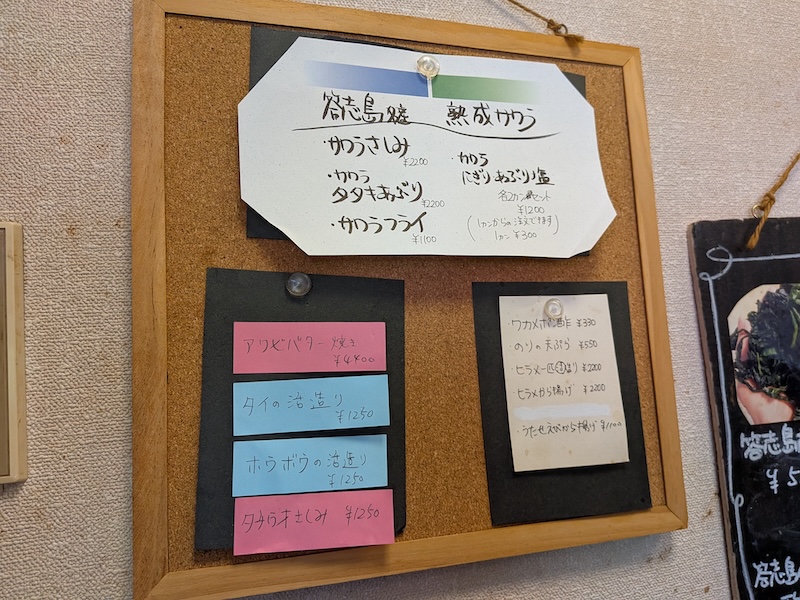 答志島産 熟成サワラ
・サワラさしみ
¥2200
・サワラ
タタキあぶり
¥2200
・サワラフライ
¥1100
・サワラ
にぎりあぶり塩
各2カンセット
¥1200
(1カンからの注文できます
1カン ¥300)
アワビバター焼き
¥4400
タイの活造り
¥1250
ホウボウの活造り
¥1250
タチウオさしみ ¥1250
ワカメポン酢 ¥330
のりの天ぷら ¥550
・ヒラメ一匹造り ¥2200
・ヒラメから揚げ ¥2200
・うたせえびから揚げ ¥1100
答志島
¥5
答志島